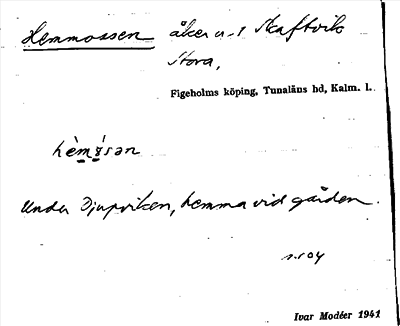 Hemmossen åker u. 1 Skaftvik
Stora,
Figeholms köping, Tunaläns hd, Kalm. l.
Under Djupviken, hemma vid gården.
s. 104
Ivar Modéer 1941